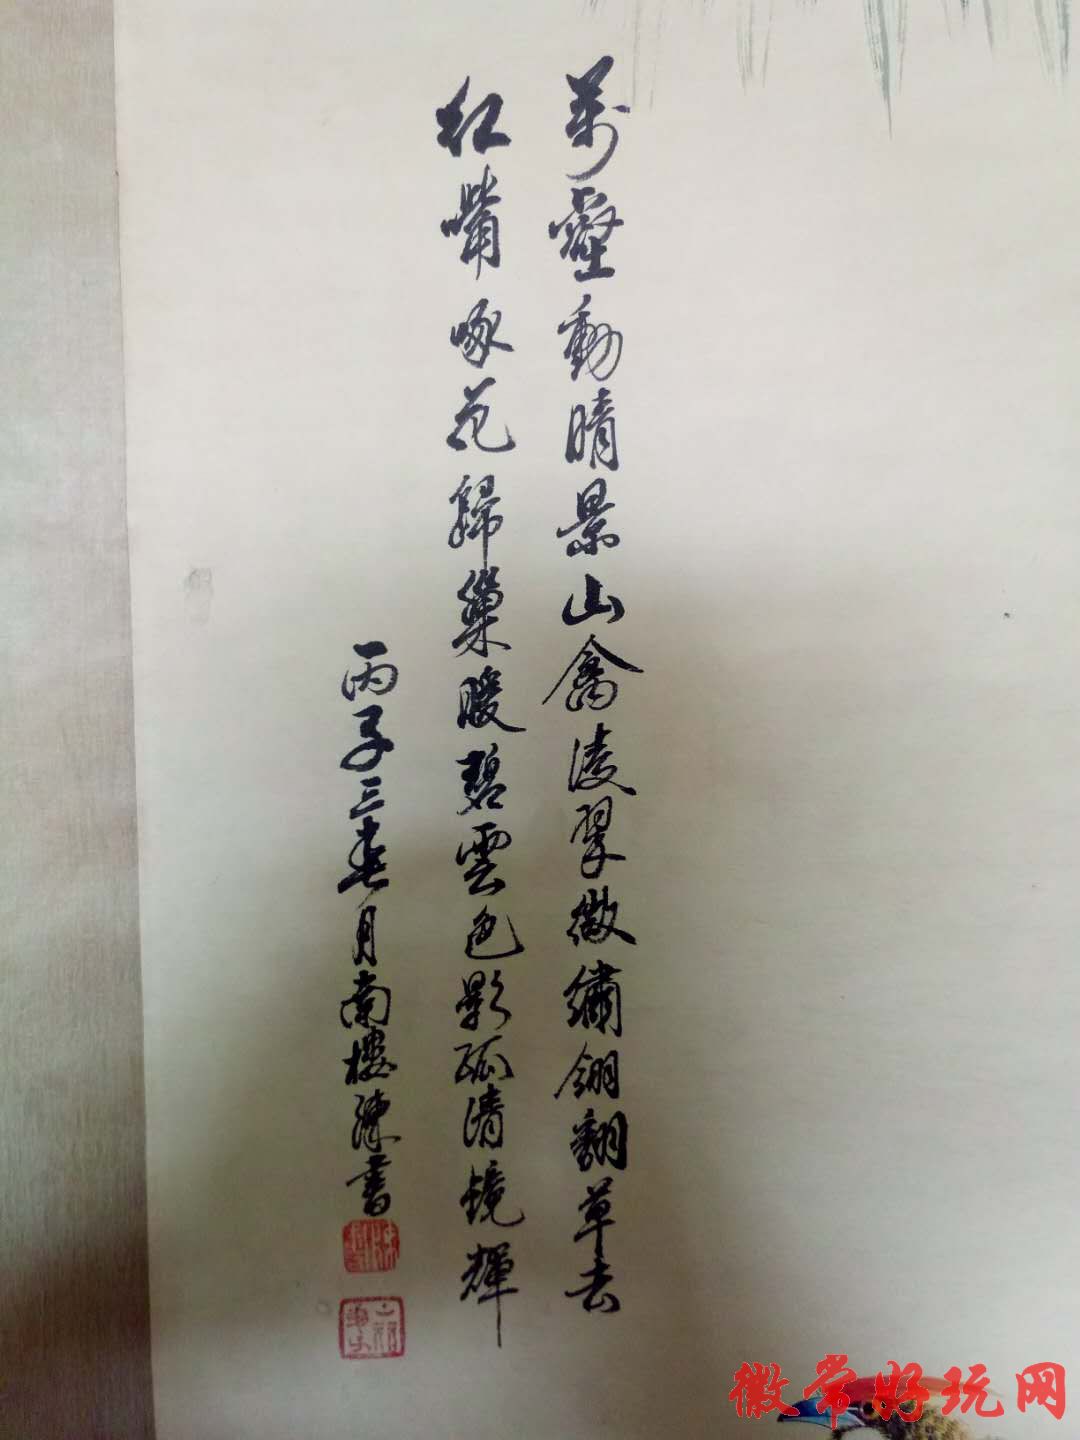 萬壑動晴景山禽淩翠微繡翎翻草去
紅嘴啄花歸巢暖碧雲色影孤清鏡輝
丙子三春月南樓陳書
徽常好玩网